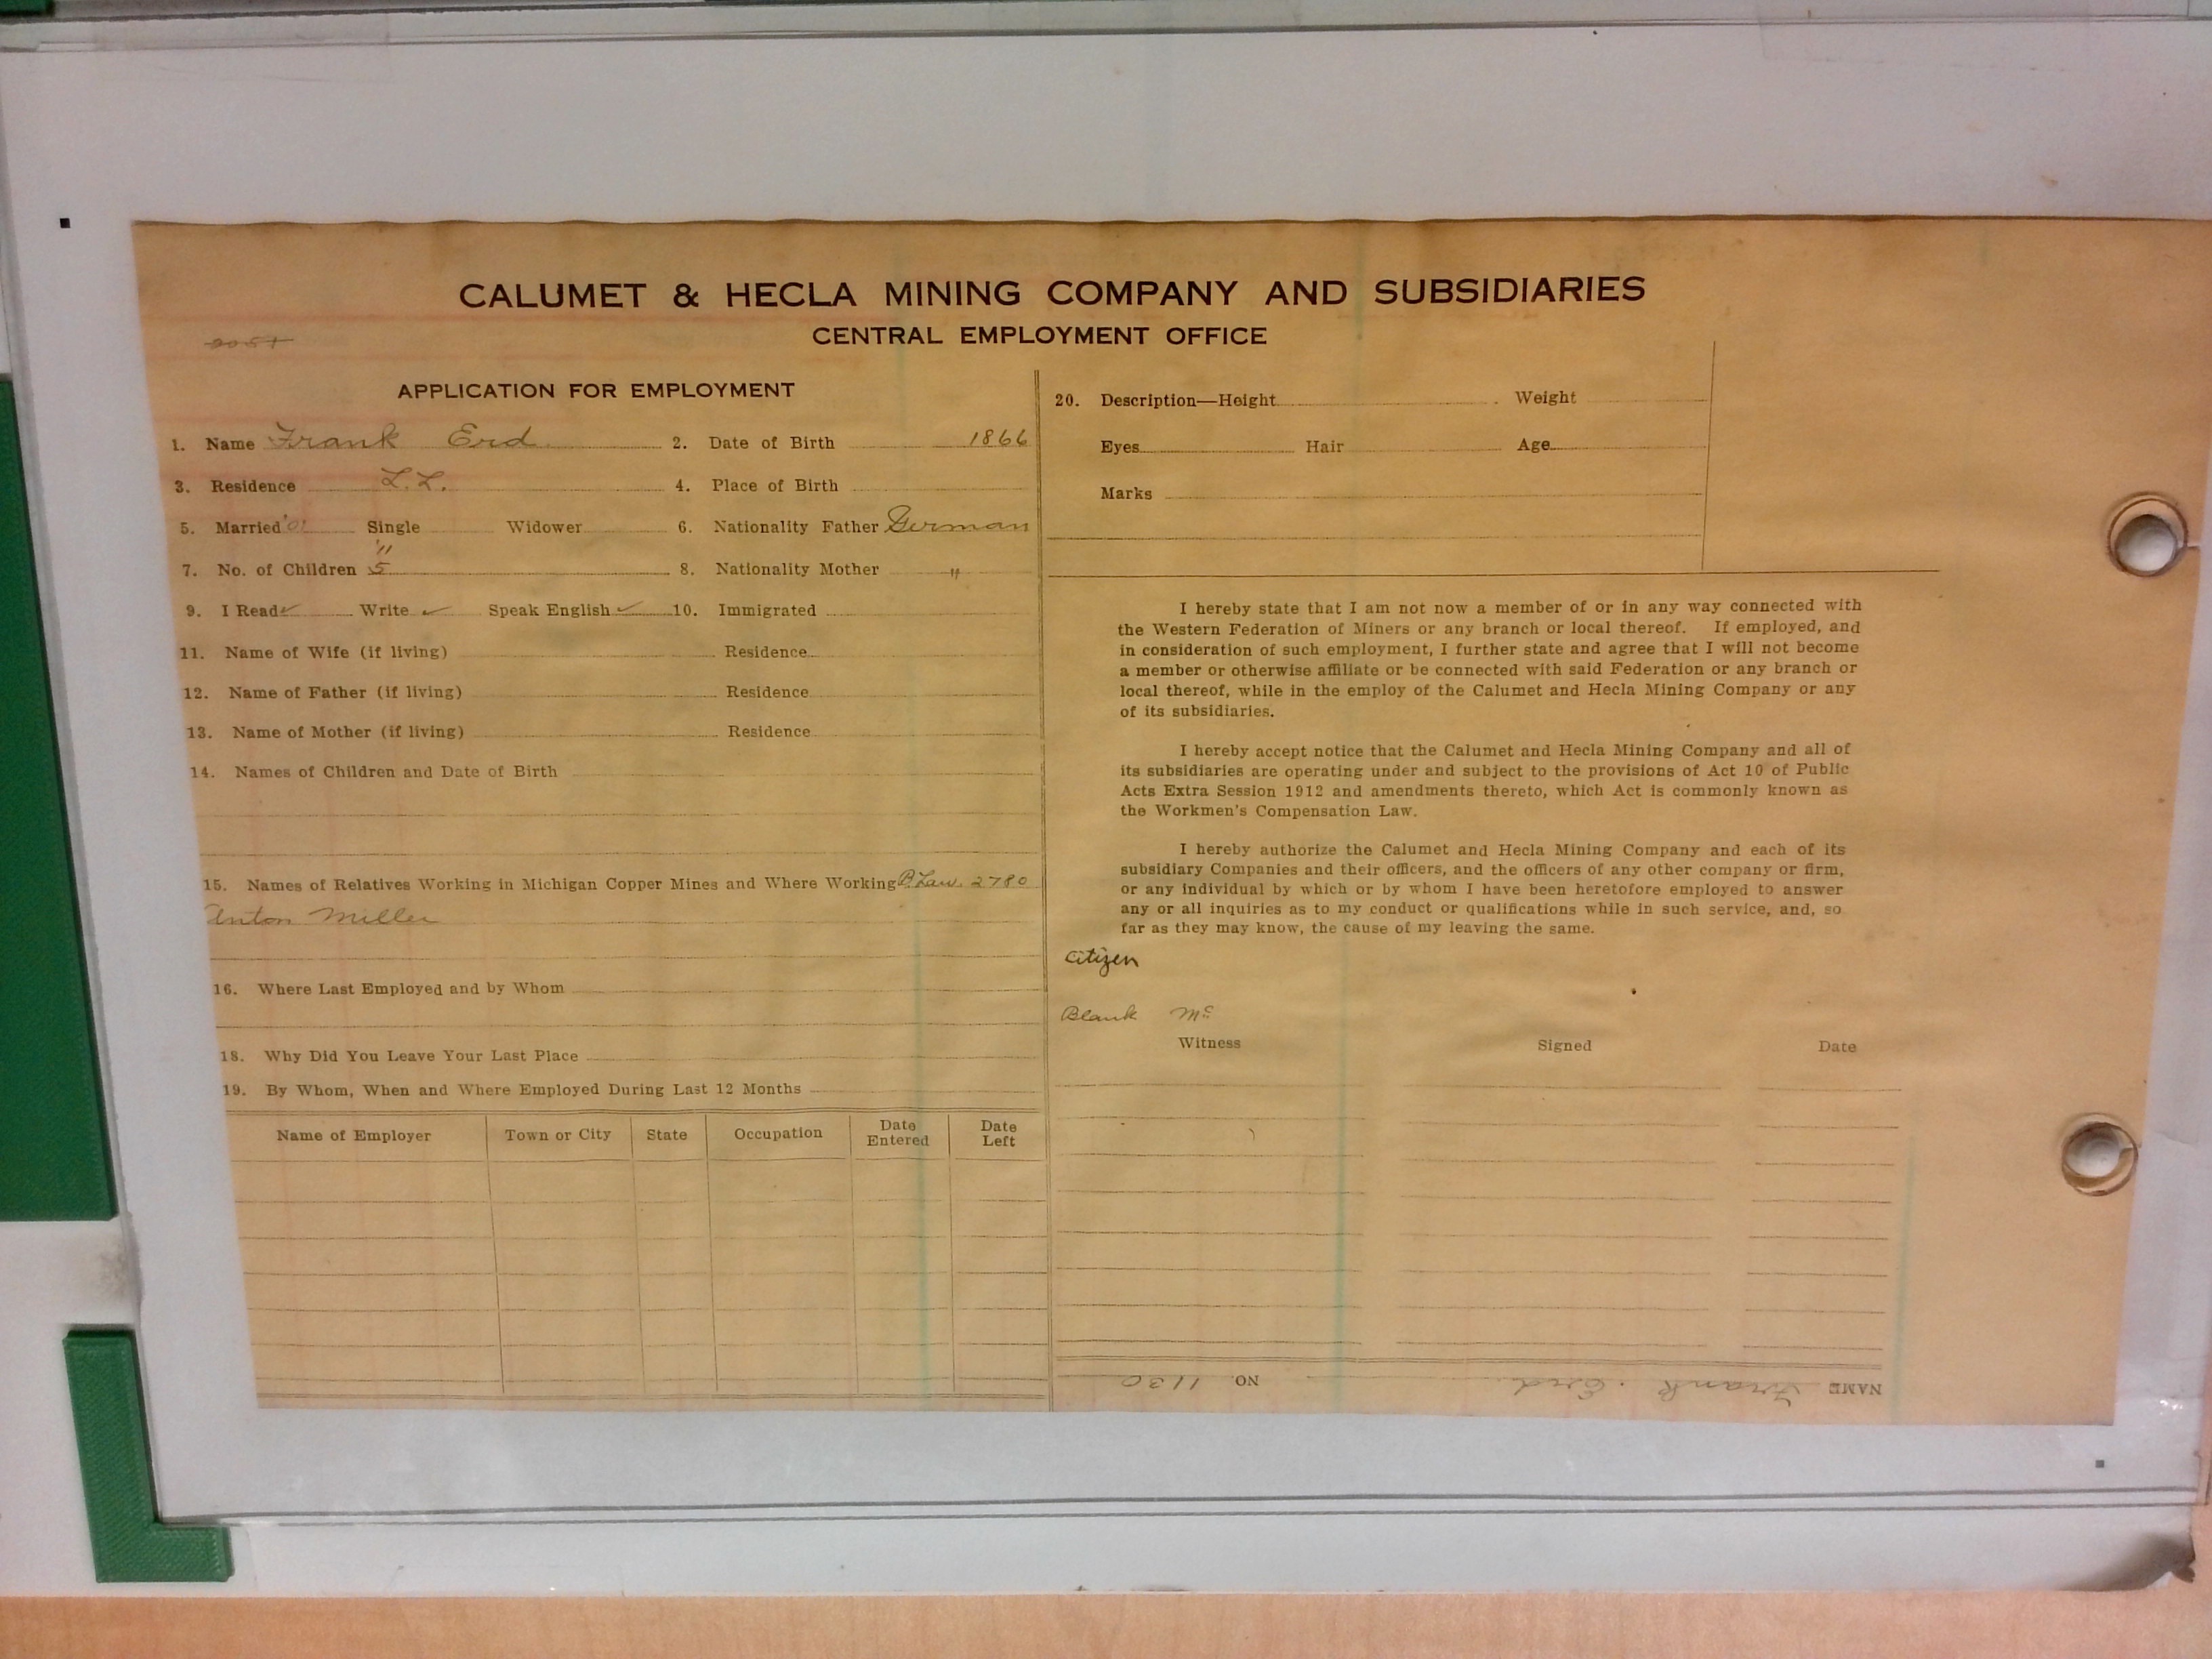 CALUMET & HECLA MINING COMPANY AND SUBSIDIARIES
CENTRAL EMPLOYMENT OFFICE
APPLICATION FOR EMPLOYMENT
1. Name Frank Erd 2. Date of Birth 1866
3. Residence L.L. 4. Place of Birth
5. Married Single Widower 6. Nationality Father German
7. No. of Children 5 8. Nationality Mother "
9. I Read ✓ Write ✓ Speak English ✓ 10. Immigrated
11. Name of Wife (if living) Residence
12. Name of Father (if living) Residence
13. Name of Mother (if living) Residence
14. Names of Children and Date of Birth
15. Names of Relatives Working in Michigan Copper Mines and Where Working B. Law. 2780
Anton Miller
16. Where Last Employed and by Whom
18. Why Did You Leave Your Last Place
19. By Whom, When and Where Employed During Last 12 Months
Name of Employer Town or City State Occupation Date Entered Date Left
20. Description—Height Weight
Eyes Hair Age
Marks
I hereby state that I am not now a member of or in any way connected with
the Western Federation of Miners or any branch or local thereof. If employed, and
in consideration of such employment, I further state and agree that I will not become
a member or otherwise affiliate or be connected with said Federation or any branch or
local thereof, while in the employ of the Calumet and Hecla Mining Company or any
of its subsidiaries.
I hereby accept notice that the Calumet and Hecla Mining Company and all of
its subsidiaries are operating under and subject to the provisions of Act 10 of Public
Acts Extra Session 1912 and amendments thereto, which Act is commonly known as
the Workmen's Compensation Law.
I hereby authorize the Calumet and Hecla Mining Company and each of its
subsidiary Companies and their officers, and the officers of any other company or firm,
or any individual by which or by whom I have been heretofore employed to answer
any or all inquiries as to my conduct or qualifications while in such service, and, so
far as they may know, the cause of my leaving the same.
Citizen
Blank Mc
Witness Signed Date
NAME Frank Erd. NO. 1130